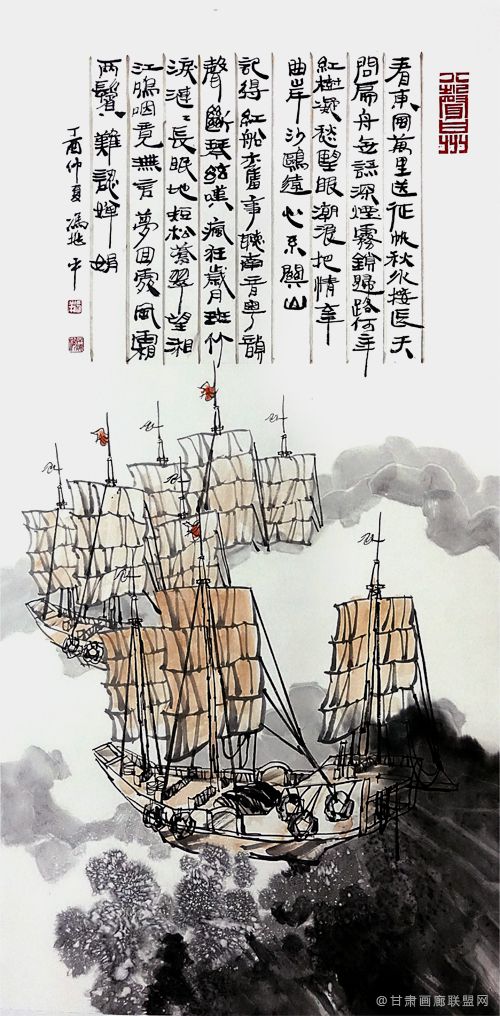 八聲甘州
看東風萬里送征帆秋水接長天
問扁舟無語深煙霧鎖歸路何年
紅樹凝愁望眼潮浪把情牽
曲岸沙鷗遠心系關山
記得紅船舊事聽南音粵韻
聲斷琴弦嘆瘋狂歲月班竹
淚漣漣長眠地短松蒼翠望湘
江嗚咽竟無言夢回處風霜
兩鬢難認嬋娟
丁酉仲夏馮平
@甘肃画廊联盟网